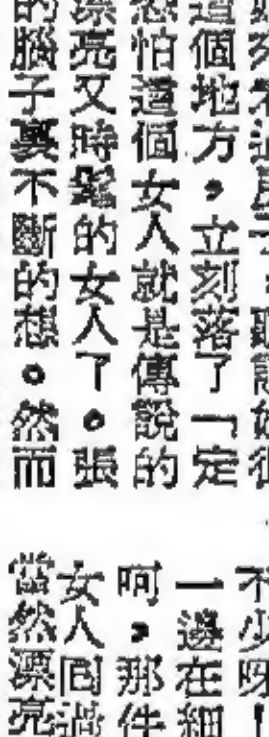 個地方，立刻落了「定
怕這個女人就是傳說的
漂亮又時髦的女人了。張
的腦子裏不斷的想。然而
不少呀！
一邊在細
呵，那件
女人回過
當然漂亮